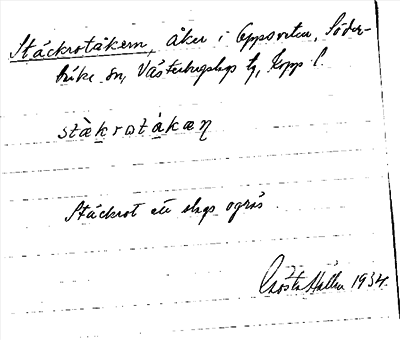 Stäckrotåkern, åker i Uppsveten, Söder-
bärke sn, Västerbergslags tg, Kopp. l.
stäkrotåkæn
Stäckrot ett slags ogräs.
Gösta Hallm 1934.